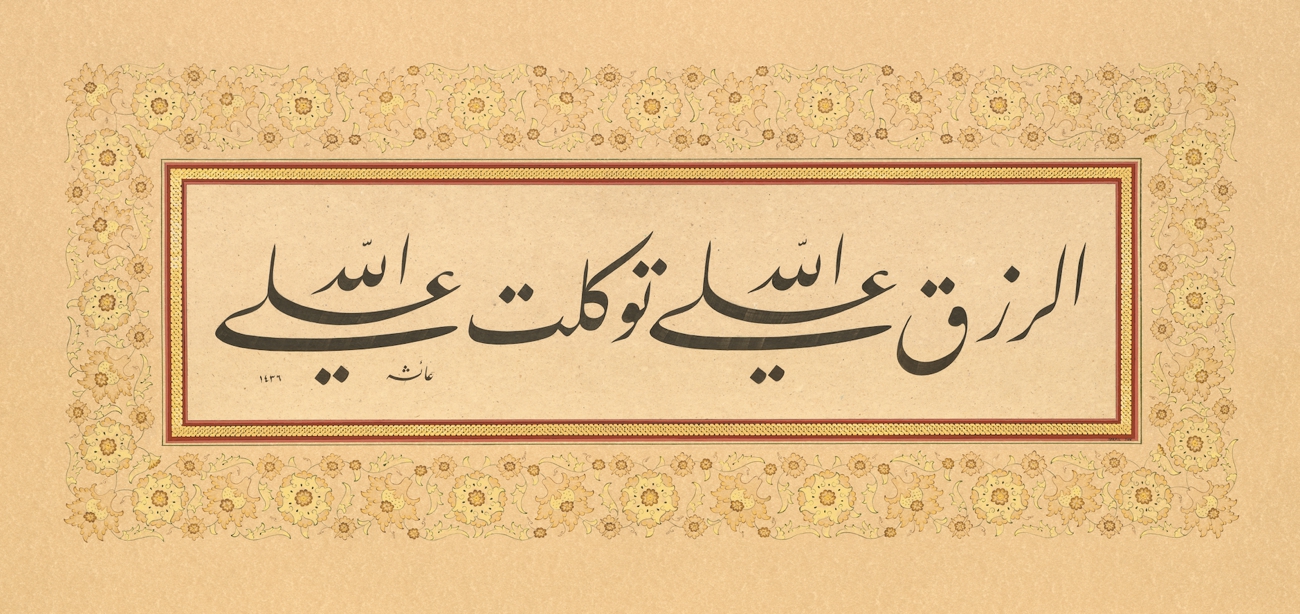 الرزق علي الله توكلت علي الله
عائشه ١٤٣٦